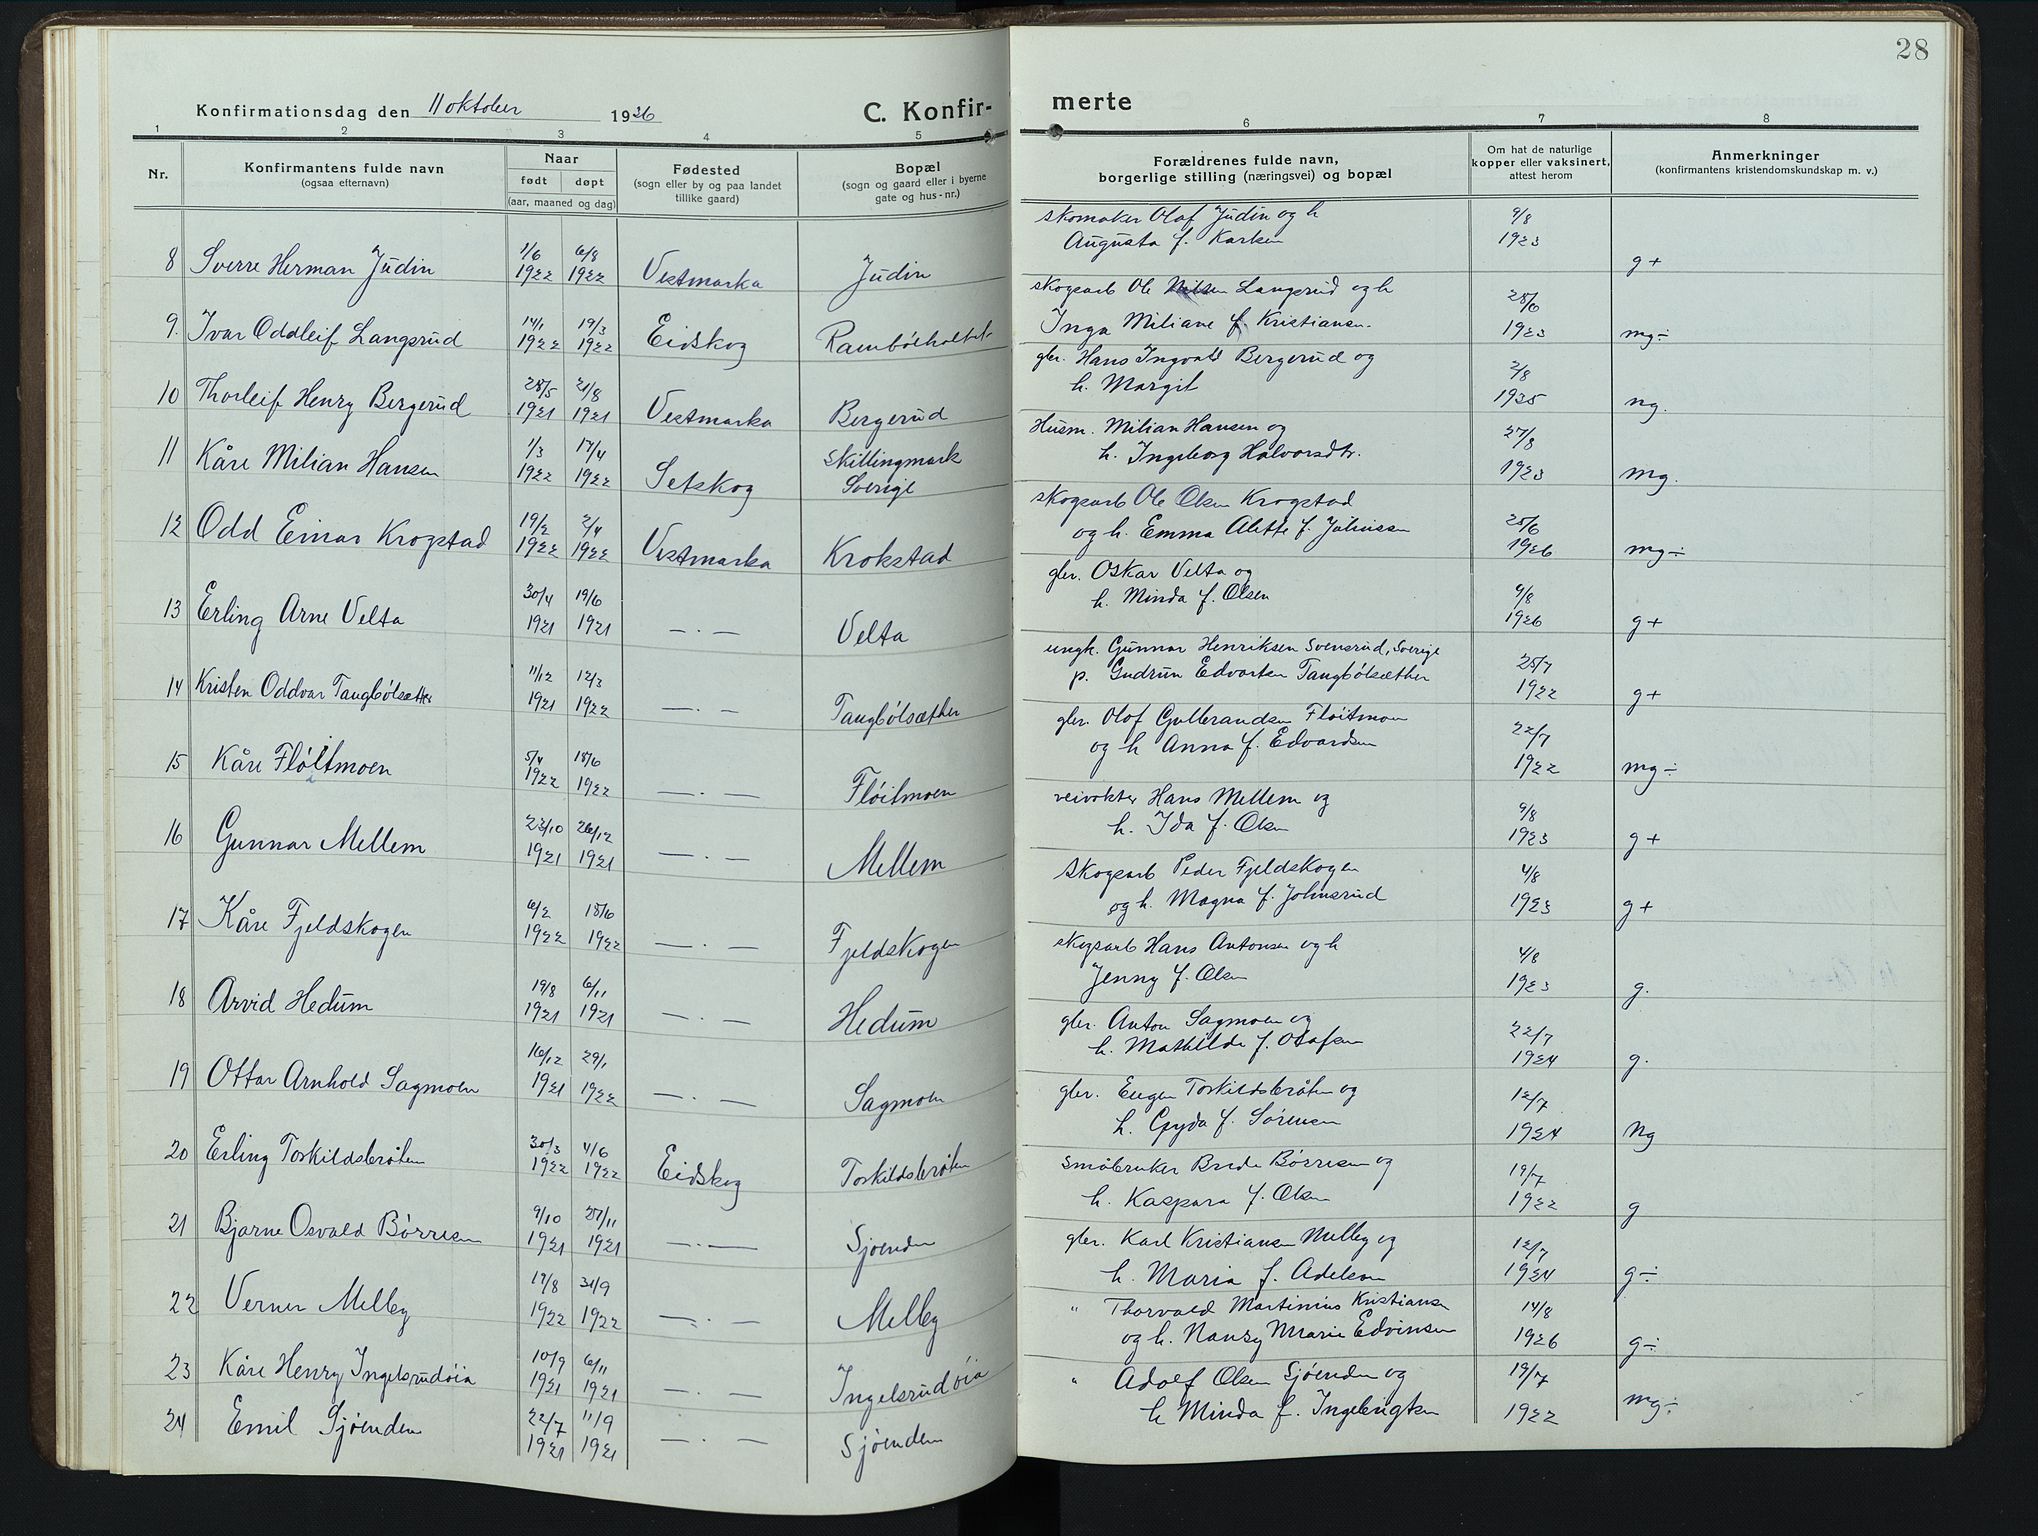 28
Konfirmationsdag den 11 oktober 1936
C. Konfir-
merte
1 2 3 4 5 6 7 8
Nr.
Konfirmantens fulde navn
(ogsaa efternavn)
Naar
født døpt
(aar, maaned og dag)
Fødested
(sogn eller by og paa landet
tillike gaard)
Bopæl
(sogn og gaard eller i byerne
gate og hus-nr.)
Forældrenes fulde navn,
borgerlige stilling (næringsvei) og bopæl
Om hat de naturlige
kopper eller vaksinert,
attest herom
Anmerkninger
(konfirmantens kristendomskundskap m. v.)
8 Sverre Herman Judin 1/6 1922 6/8 1922 Vestmarka Judin
skomaker Olaf Judin og h
Augusta f. Karlsen
9/8 1923 g+
9. Ivar Oddleif Langsrud 14/1 1922 19/3 1922 Eidskog
skogsarb Ole Langsrud og h
Inga Miliane f. Kristiansen.
28/6 1923 mg÷
10 Thorleif Henry Bergerud 28/5 1921 21/8 1921 Vestmarka Bergerud
gbr. Hans Ingvald Bergerud og
h. Margit
2/8 1935 ng.
11 Kåre Milian Hansen 1/3 1922 17/4 1922 Setskog Skillingmark
Sverige
Husm. Milian Hansen og
h. Ingeborg Halvorsdtr.
27/8 1923 mg.
12 Odd Einar Krogstad 19/2 1922 2/4 1922 Vestmarka Krokstad
skogsarb Ole Olsen Krogstad
og h. Emma Alette f. Juliussen
28/6 1926 mg÷
13 Erling Arne Velta 30/4 1921 19/6 1921 — . — Velta
gbr. Oskar Velta og
h. Minda f. Olsen
9/8 1926 g+
14 Kristen Oddvar Taugbølsætter 11/12 1921 12/3 1922 — . — Taugbølsæther
ungk. Gunnar Henriksen Svensrud, Sverige
p. Gudrun Edvartsen Taugbølsæther
25/7 1922 g+
15 Kåre Fløitmoen 5/4 1922 18/6 1922 — . — Fløitmoen
gbr. Olof Gulbrandsen Fløitmoen
og h Anna f. Edvardsen
22/7 1922 mg÷
16 Gunnar Mellem 23/10 1921 26/12 1921 — . — Mellem
veivokter Hans Mellem og
h. Ida f. Olsen
9/8 1923 g+
17 Kåre Fjeldskogen 6/2 1922 18/6 1922 — . — Fjeldskogen
Skogsarb Peder Fjeldskogen
og h. Magna f. Johnsrud
4/8 1923 g+
18 Arvid Hedum 19/8 1921 6/11 1921 — . — Hedum
skogsarb Hans Antonsen og h
Jenny f. Olsen
4/8 1923 g.
19 Ottar Arnhold Sagmoen 16/12 1921 29/1 1922 — . — Sagmoen
gbr. Anton Sagmoen og
h. Mathilde f. Olafsen
22/7 1924 g.
20 Erling Torkildsbråten 30/3 1922 4/6 1922 Eidskog Torkildsbråten
gbr. Eugen Torkildsbråten og
h. Gyda f. Sørensen
12/7 1924 Ng
21 Bjarne Osvald Børresen 9/10 1921 27/11 1921 — . — Sjøenden
småbruker Brede Børresen og
h. Kaspara f. Olsen
19/7 1922 g
22 Verner Melby 17/8 1922 31/9 1922 — . — Melby
gbr. Karl Kristiansen Melby og
h. Maria f. Adelsen
12/7 1924 g÷
23 Kåre Henry Ingelsrudøia 10/9 1921 6/11 1921 — . — Ingelsrudøia
" Thorvald Martinius Kristiansen
og h. Nanzy Marie Edvinsen
14/8 1926 g÷
24 Emil Sjøenden 22/7 1921 11/9 1921 — . — Sjøenden
" Adolf Olsen Sjøenden og
h Minda f. Ingebrigtsen
19/7 1922 mg÷